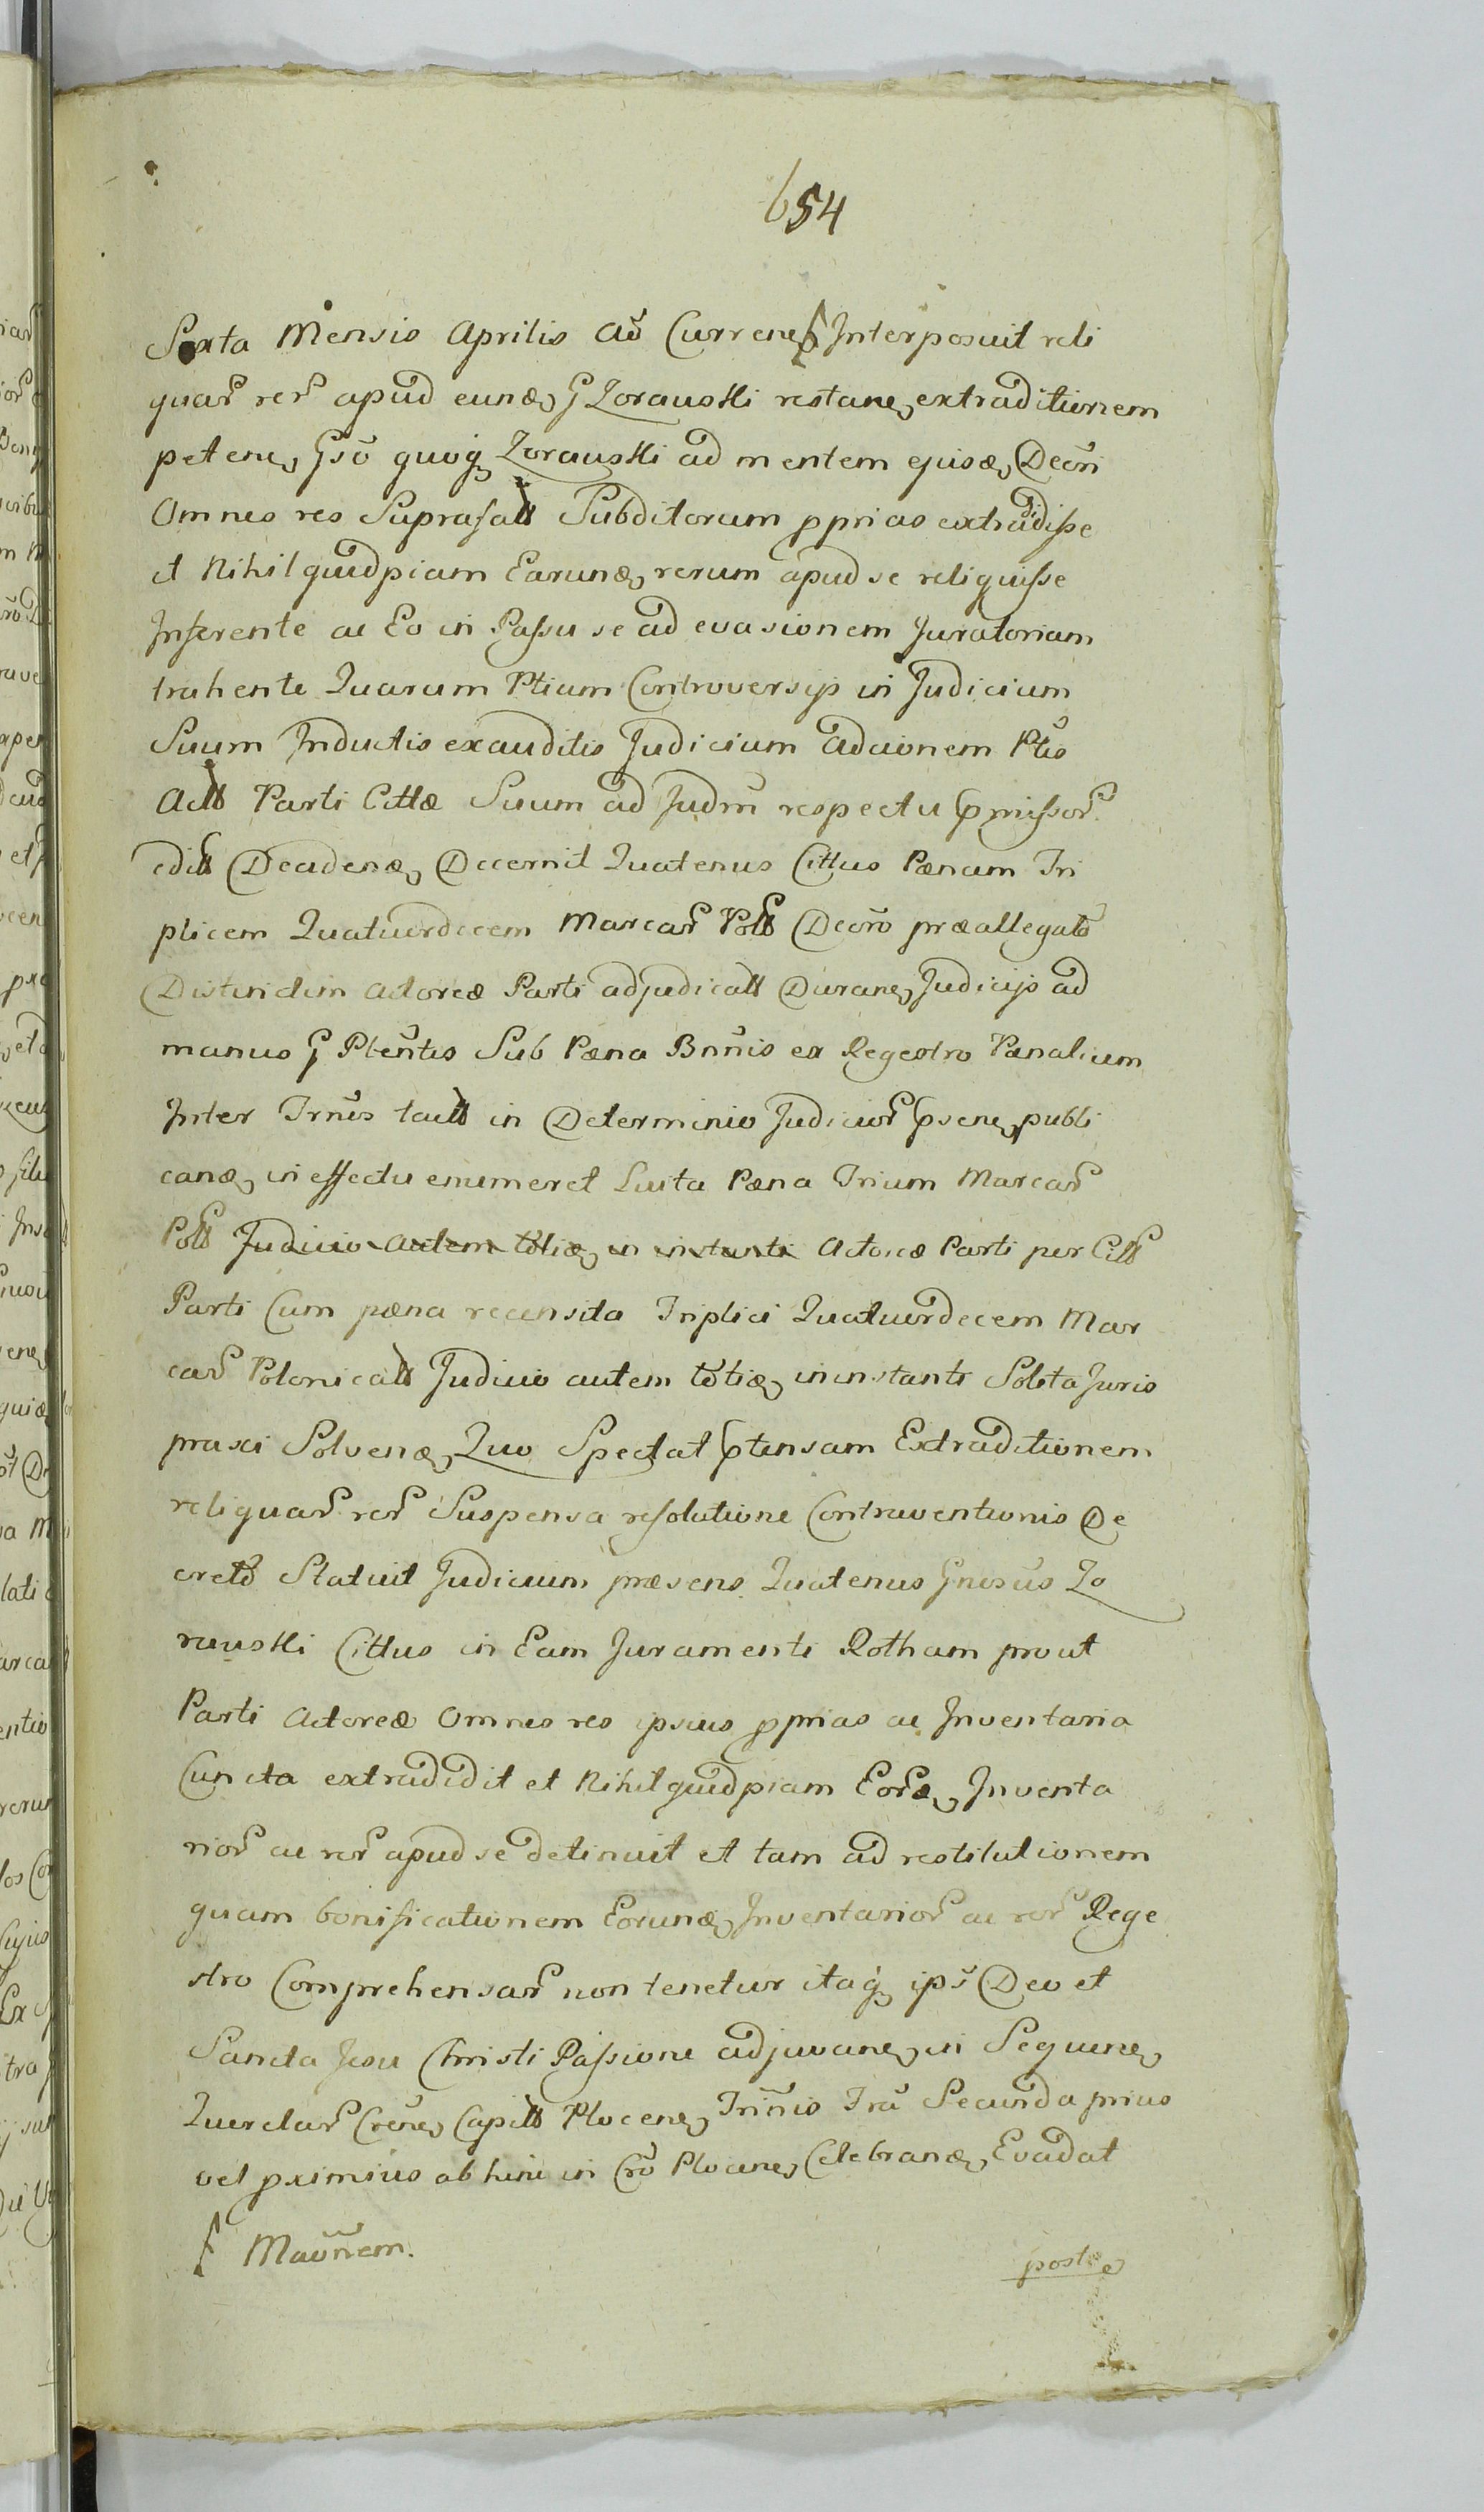 654
Sexta Mensis Aprilis Ao Curren, Interposuit reli
quar rer apud eund, G Zorawski restan, extraditionem
peten, Gso quoq, Zorawski ad mentem ejusd, Decri
Omnes res Suprafatt Subditorum pprias extradidisse
et Nihil quidpiam Earund, rerum apud se reliquisse
Inferente ac Eo in Passu se ad evasionem Juratoriam
trahente Quarum Ptium Controversijs in Judicium
Suum Inductis exauditis Judicium adcionem Ptis
Actt Parti Cittæ Suum ad Judm respectu pmissor
editt Decadend, Decernit Quatenus Cittus Pænam Tri
plicem Quatuordecem Marcar Poltt Decro præallegato
Distinctim actoreæ Parti adjudicatt Duran, Judicijs ad
manus G Ptentis Sub Pæna Bnnis ex Regestro Pænalium
Inter Trnis tactt in Determinio Judicior psen, publi
cand, in effectu enumeret Luita Pæna Trium Marcar
Poltt Judicio autem totid, in instanti Actoreæ Parti per Citt
Parti Cum pæna recensita Triplici Quatuordecem Mar
car Polonicatt Judicio autem totid, in instanti Solita Juris
praxi Solvend, Quo Spectat ptensam Extraditionem
reliquar rer Suspensa resolutione Contraventionis De
creto Statuit Judicium præsens Quatenus Gnosus Zo
rawski Cittus in Eam Juramenti Rotham prout
Parti Actoreæ Omnes res ipsius pprias ac Inventaria
Cuncta extradidit et Nihil quidpiam Eord, Inventa
rior ac rer apud se detinuit et tam ad restitutionem
quam bonificationem Eorund, Inventarior ac rer Rege
stro Comprehensar non tenetur itaq, ips Deo et
Sancta Jesu Christi Passione adjuvan, in Sequen,
Querelar Cren, Capitt Plocen, Trinnis Tra Secunda prius
vel pximius ab hinc in Cro Plocen, Celebrand, Evadat
Maonem.
post e,